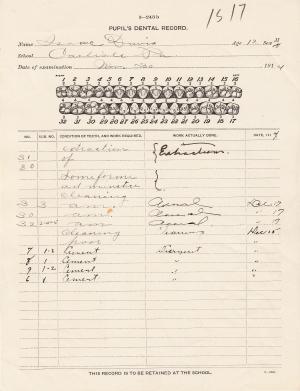 1517
5-243b
PUPIL'S DENTAL RECORD.
Name Isaac Davis Age 12 Sex M
School Carlisle Pa
Date of examination Nov. 30 1914
1 2 3 4 5 6 7 8 9 10 11 12 13 14 15 16
32 31 30 29 28 27 26 25 24 23 22 21 20 19 18 17
NO. SUR. NO. CONDITION OF TEETH, AND WORK REQUIRED. WORK ACTUALLY DONE. DATE, 1914
extraction Extraction
31 of
30
cleaning
3 3 am. Dec 17
30 am. " 17
32 am " 17
cleaning Cleaning Dec 15
poor
7 1-2 Cement "
8 1 Cement " "
9 1-2 Cement " "
6 1 Cement " "
THIS RECORD IS TO BE RETAINED AT THE SCHOOL.